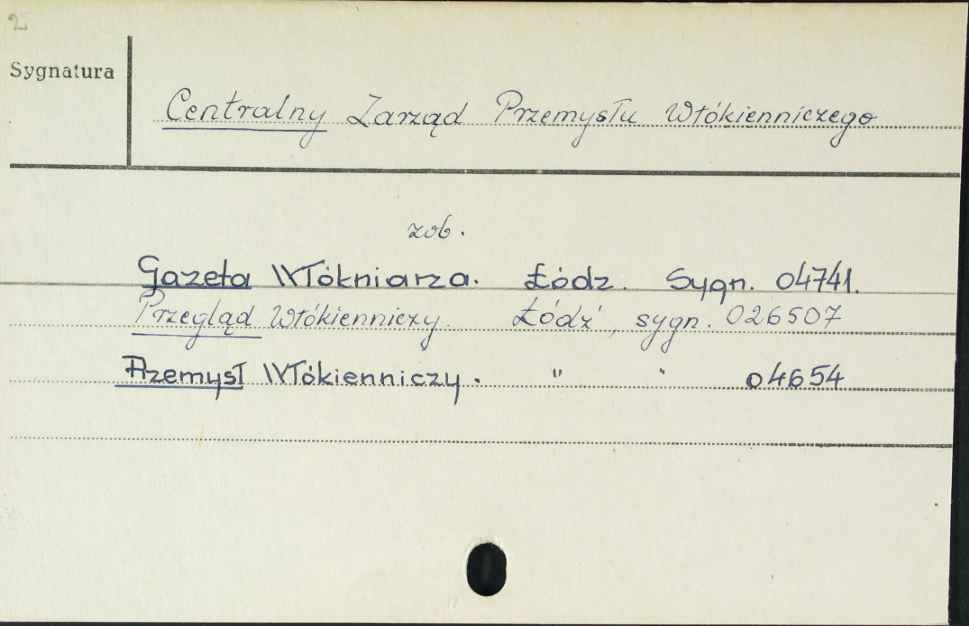 2
Sygnatura
Centralny Zarząd Przemysłu Włókienniczego
zob.
Gazeta Włókniarza. Łódz. Sygn. 04741.
Przegląd Włókienniczy. Łódź, sygn. 026507
Przemysł Włókienniczy. " " 04654